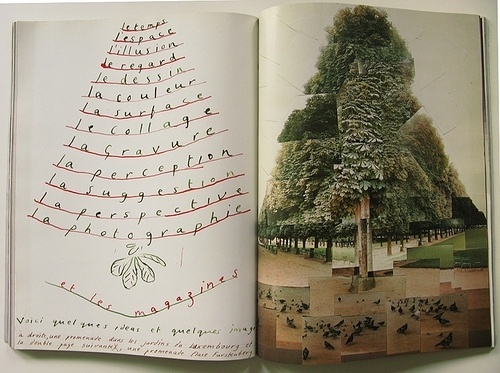 le temps
l'espace
l'illusion
le regard
le dessin
la couleur
la surface
le collage
la gravure
la perception
la suggestion
la perspective
la photographie
et les magazines
Voici quelques ideas et quelques imag
à droite, une promenade dans les jardins du Luxembourg et
la double page suivante, une promenade Place Furstenberg